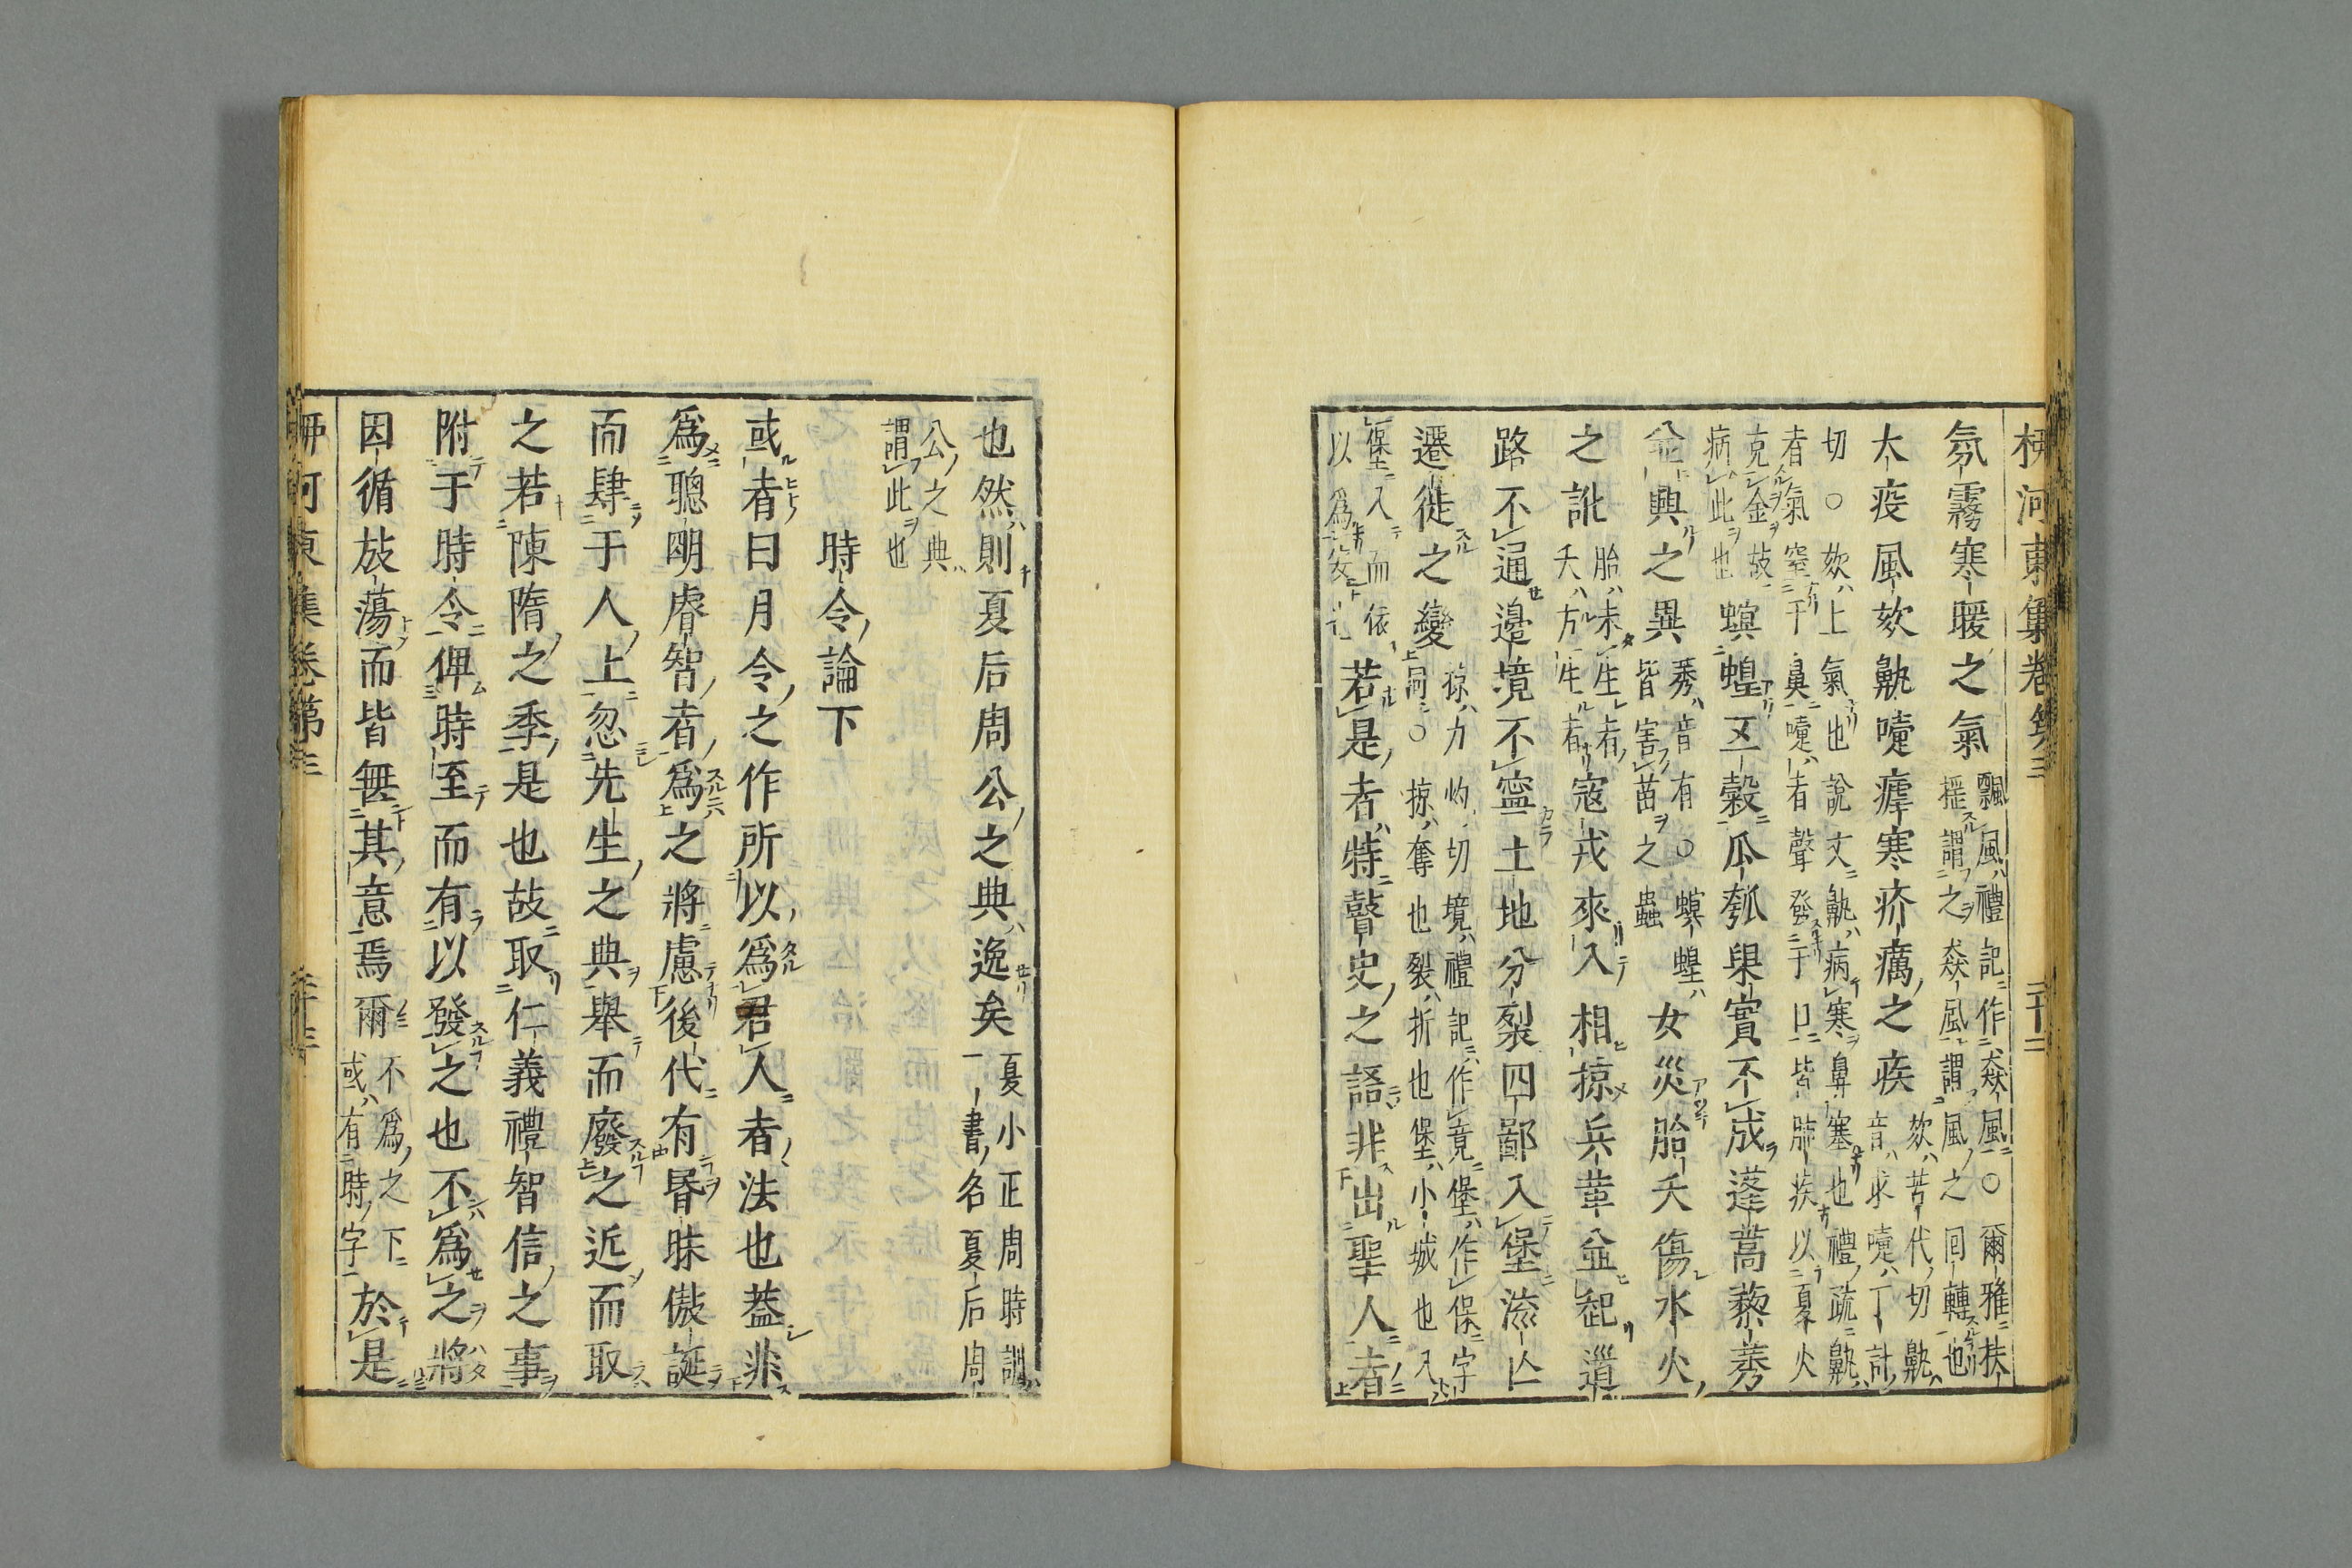 柳河東集卷第三
二十二
氛霧寒暖之氣飄風禮記作猋風○爾雅扶
搖謂之猋風謂風之回轉也
大疫風欬鼽嚏瘧寒疥癘之疾欬苦代切鼽
音求嚏丁計
切○欬上氣也說文鼽病寒鼻塞也禮疏鼽
者氣窒于鼻嚏者聲發于口皆肺疾以夏火
克金故
病此也螟蝗五穀瓜瓠果實不成蓬蒿藜莠
並興之異莠音有○螟蝗
皆害苗之蟲女災胎夭傷水火
之訛胎未生者
夭方生者寇戎來入相掠兵革並起道
路不通邊境不寧土地分裂四鄙入堡流亡
遷徙之變掠力灼切境禮記作竟堡作保字
同○掠奪也裂折也堡小城也入
堡入而依
以為安也若是者特瞽史之語非出聖人者
也然則夏后周公之典逸矣夏小正周時訓
一書名夏后周
公之典
謂此也
時令論下
或者曰月令之作所以為君人者法也蓋非
為聰明睿智者為之將慮後代有昏昧傲誕
而肆于人上忽先生之典舉而廢之近而取
之若陳隋之季是也故取仁義禮智信之事
附于時令俾時至而有以發之也不為之將
因循放蕩而皆無其意焉爾不為之下
或有時字於是
柳河東集卷第三